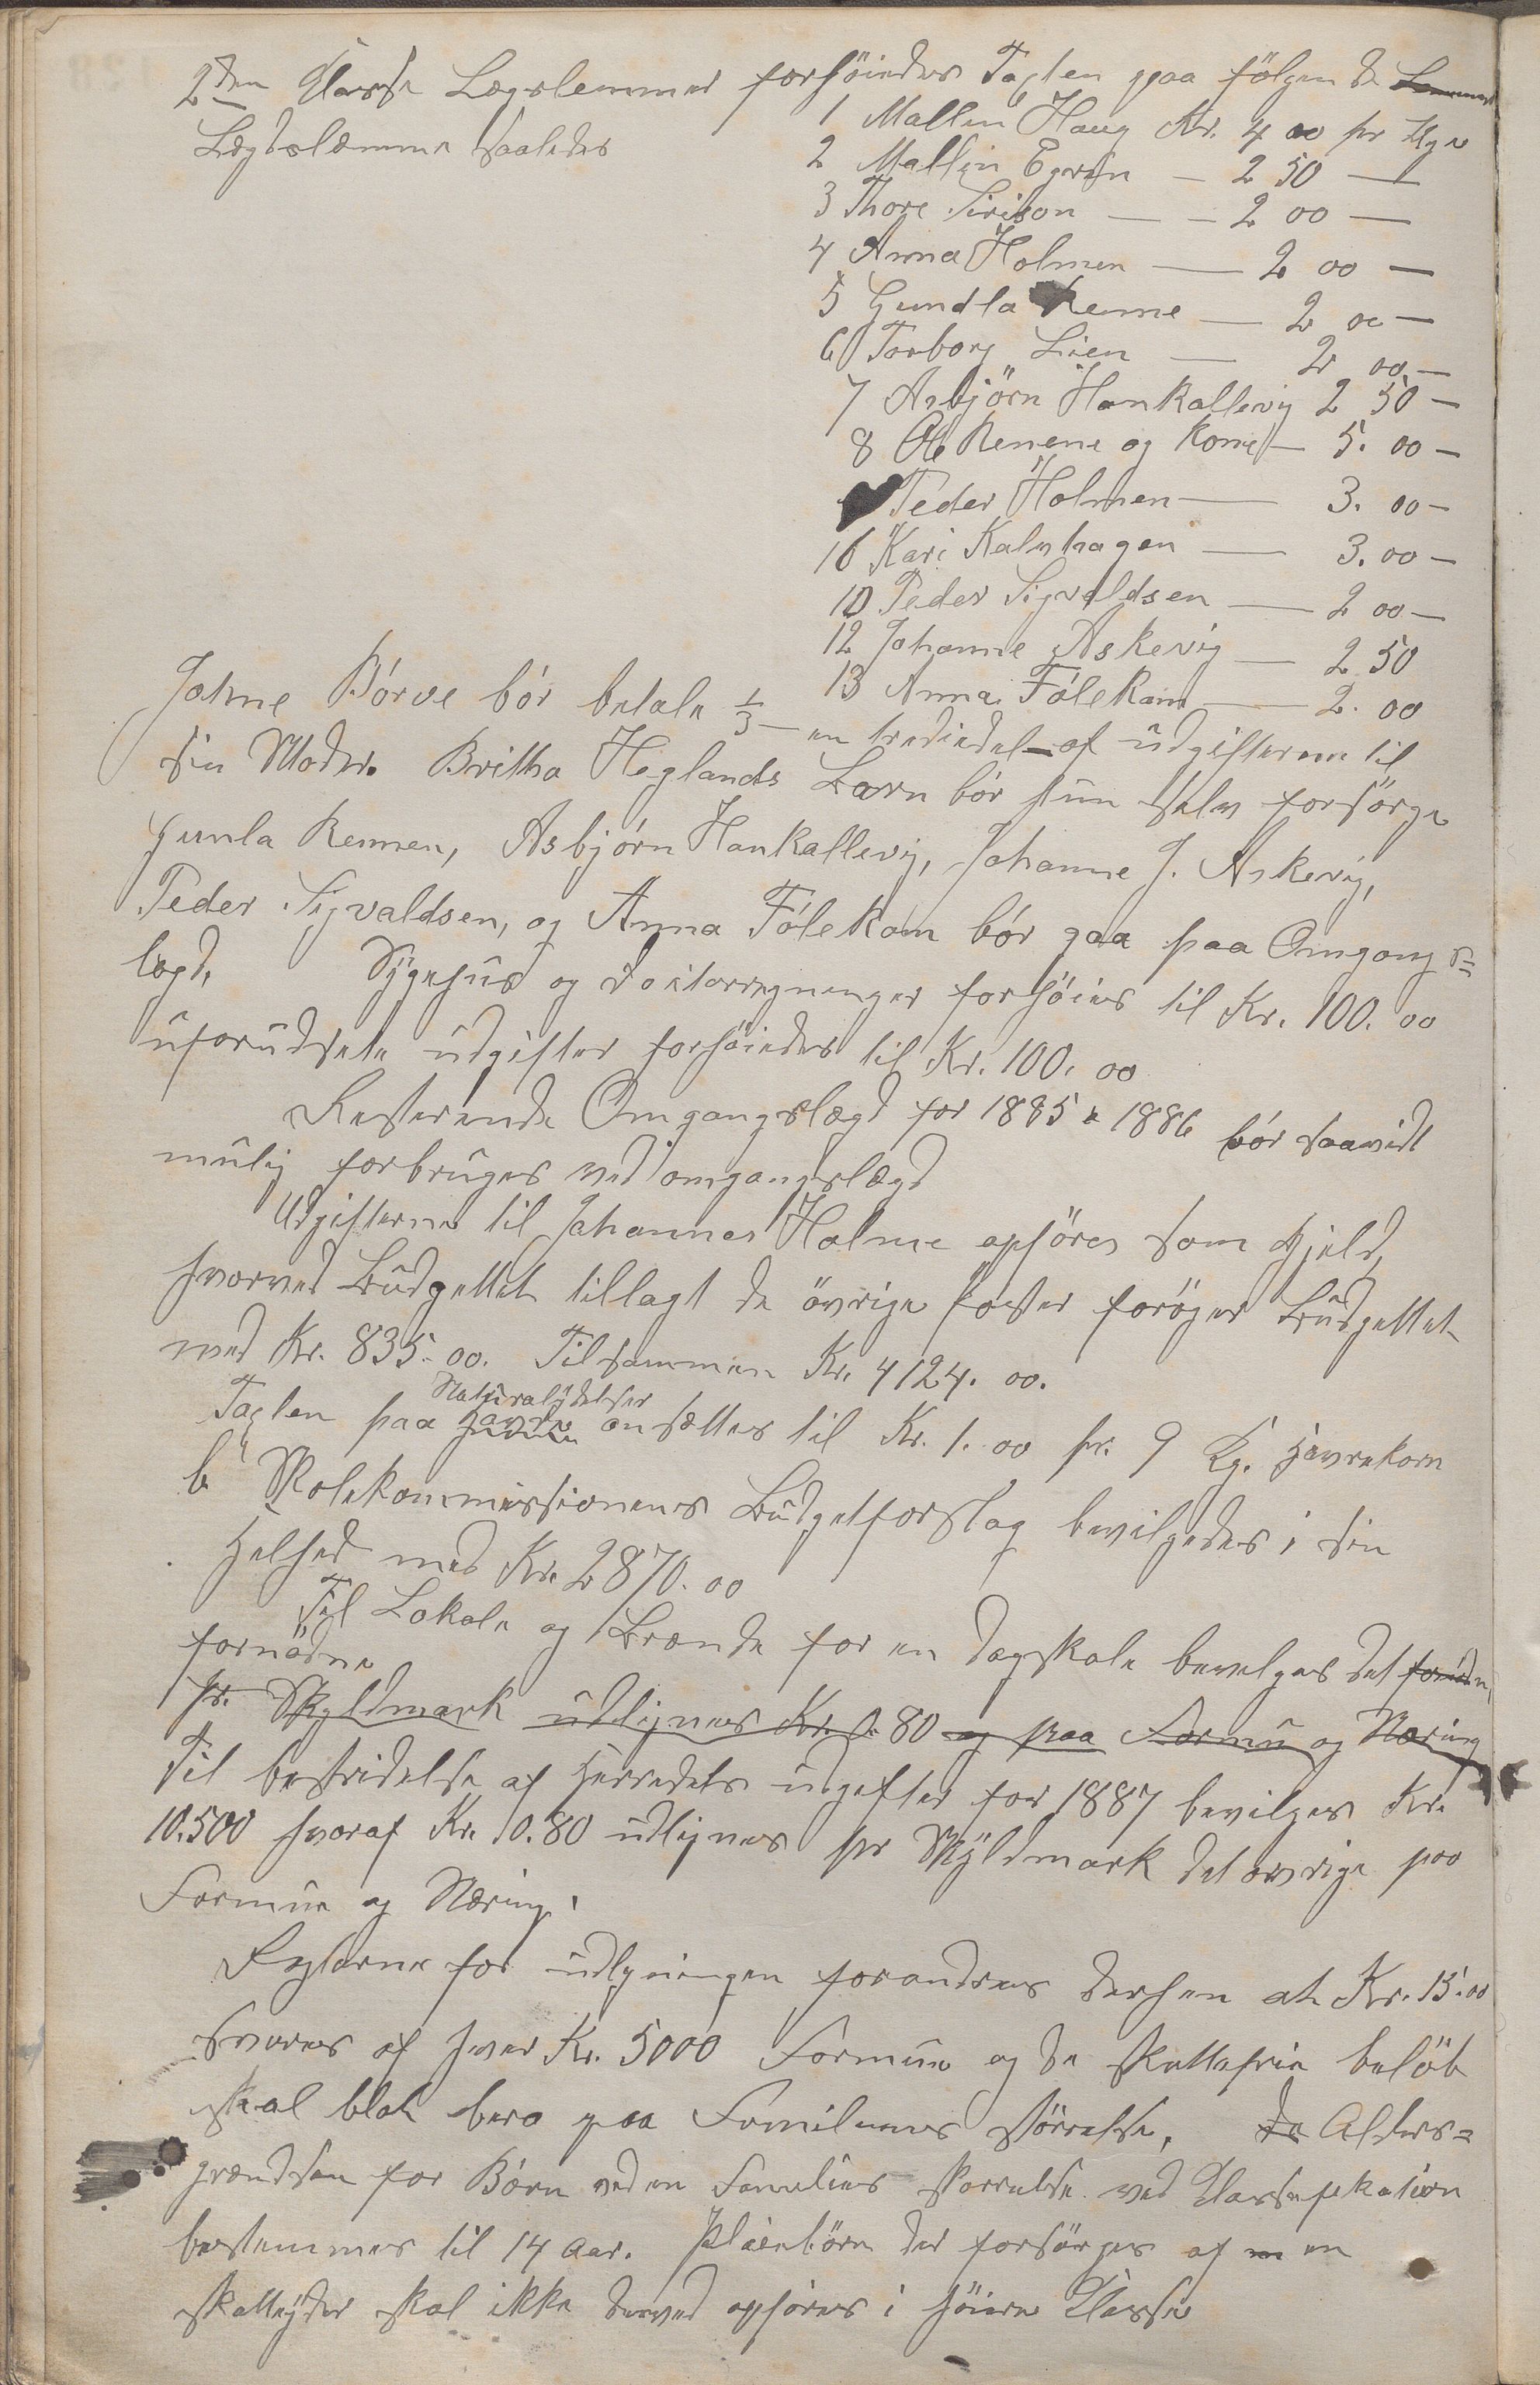 2den Classe Lægslemmer forhöiedes Taxten paa fölgende Lemmer
Lægdslæmmer saaledes
1 Mallin Haug Kr. 4 00 pr Uge
2 Mallin — 2 50 —
3 Thore Sirison — — 2 00 —
4 Anna Holmen — 2 00 —
5 Gundla Renne — 2 00 —
6 Torborg Lien — 2 00 —
7 Asbjörn Hankallevig 2 50 —
8 Ole Rennene og Kone — 5. 00 —
Peder Holmen — 3. 00 —
10 Kari Kalvhagen — 3. 00 —
10 Peder Sigvaldsen — 2 00 —
12 Johanne Askevig — 2 50
13 Anna Fölekam — 2. 00
Johne Börve bör betale 1/3 — en trediedel — af udgifterne til
sin Moder. Britha Heglands Barn bör hun selv forsörge
Gunla Rennen, Asbjörn Hankallevig, Johanne J. Askevig,
Peder Sigvaldsen, og Anna Fölekam bör gaa paa Omgangs=
lægd. Sygehus og Doctorregninger forhöies til Kr. 100. 00
uforudsete udgifter forhöiedes til Kr. 100. 00
Resterende Omgangslægd for 1885 & 1886 bör saavidt
mulig forbruges ved omgangslægd
Udgifterne til Johannes Holme opföres som Gjeld,
hvorved Budgettet tillagt de övrige poster foröger Budgettet
med Kr. 835. 00. Tilsammen Kr. 4124. 00.
Naturalydelser
Taxten paa Havre ansættes til Kr. 1. 00 pr. 9 Kg. Havrekorn
b. Skolekommissionens Budgetforslag bevilgedes i sin
Helhed med Kr. 2870. 00
Til Lokale og Brænde for en Dagskole bevelges det fornödn
fornödne
pr. Skyldmark udlignes Kr. 0. 80 og paa Formu og Næring
Til bestridelse af Herredets udgefter for 1887 bevilges Kr.
10.500 hvoraf Kr. 0.80 udlignes pr Skyldmark det øvrige paa
Formue og Næring.
Reglerne for udlgningen forandres derhen at Kr. 15.00
svares af hver Kr. 5000 Formue og de skattefrie belöb
skal blot bero paa Familiernes störrelse, de Alders=
grændsen for Börn ved en Families störrelse ved Classefikation
bestemmes til 14 Aar. Pleiebörn der forsörges af en
skatteyder skal ikke derved opföres i höiere Classe